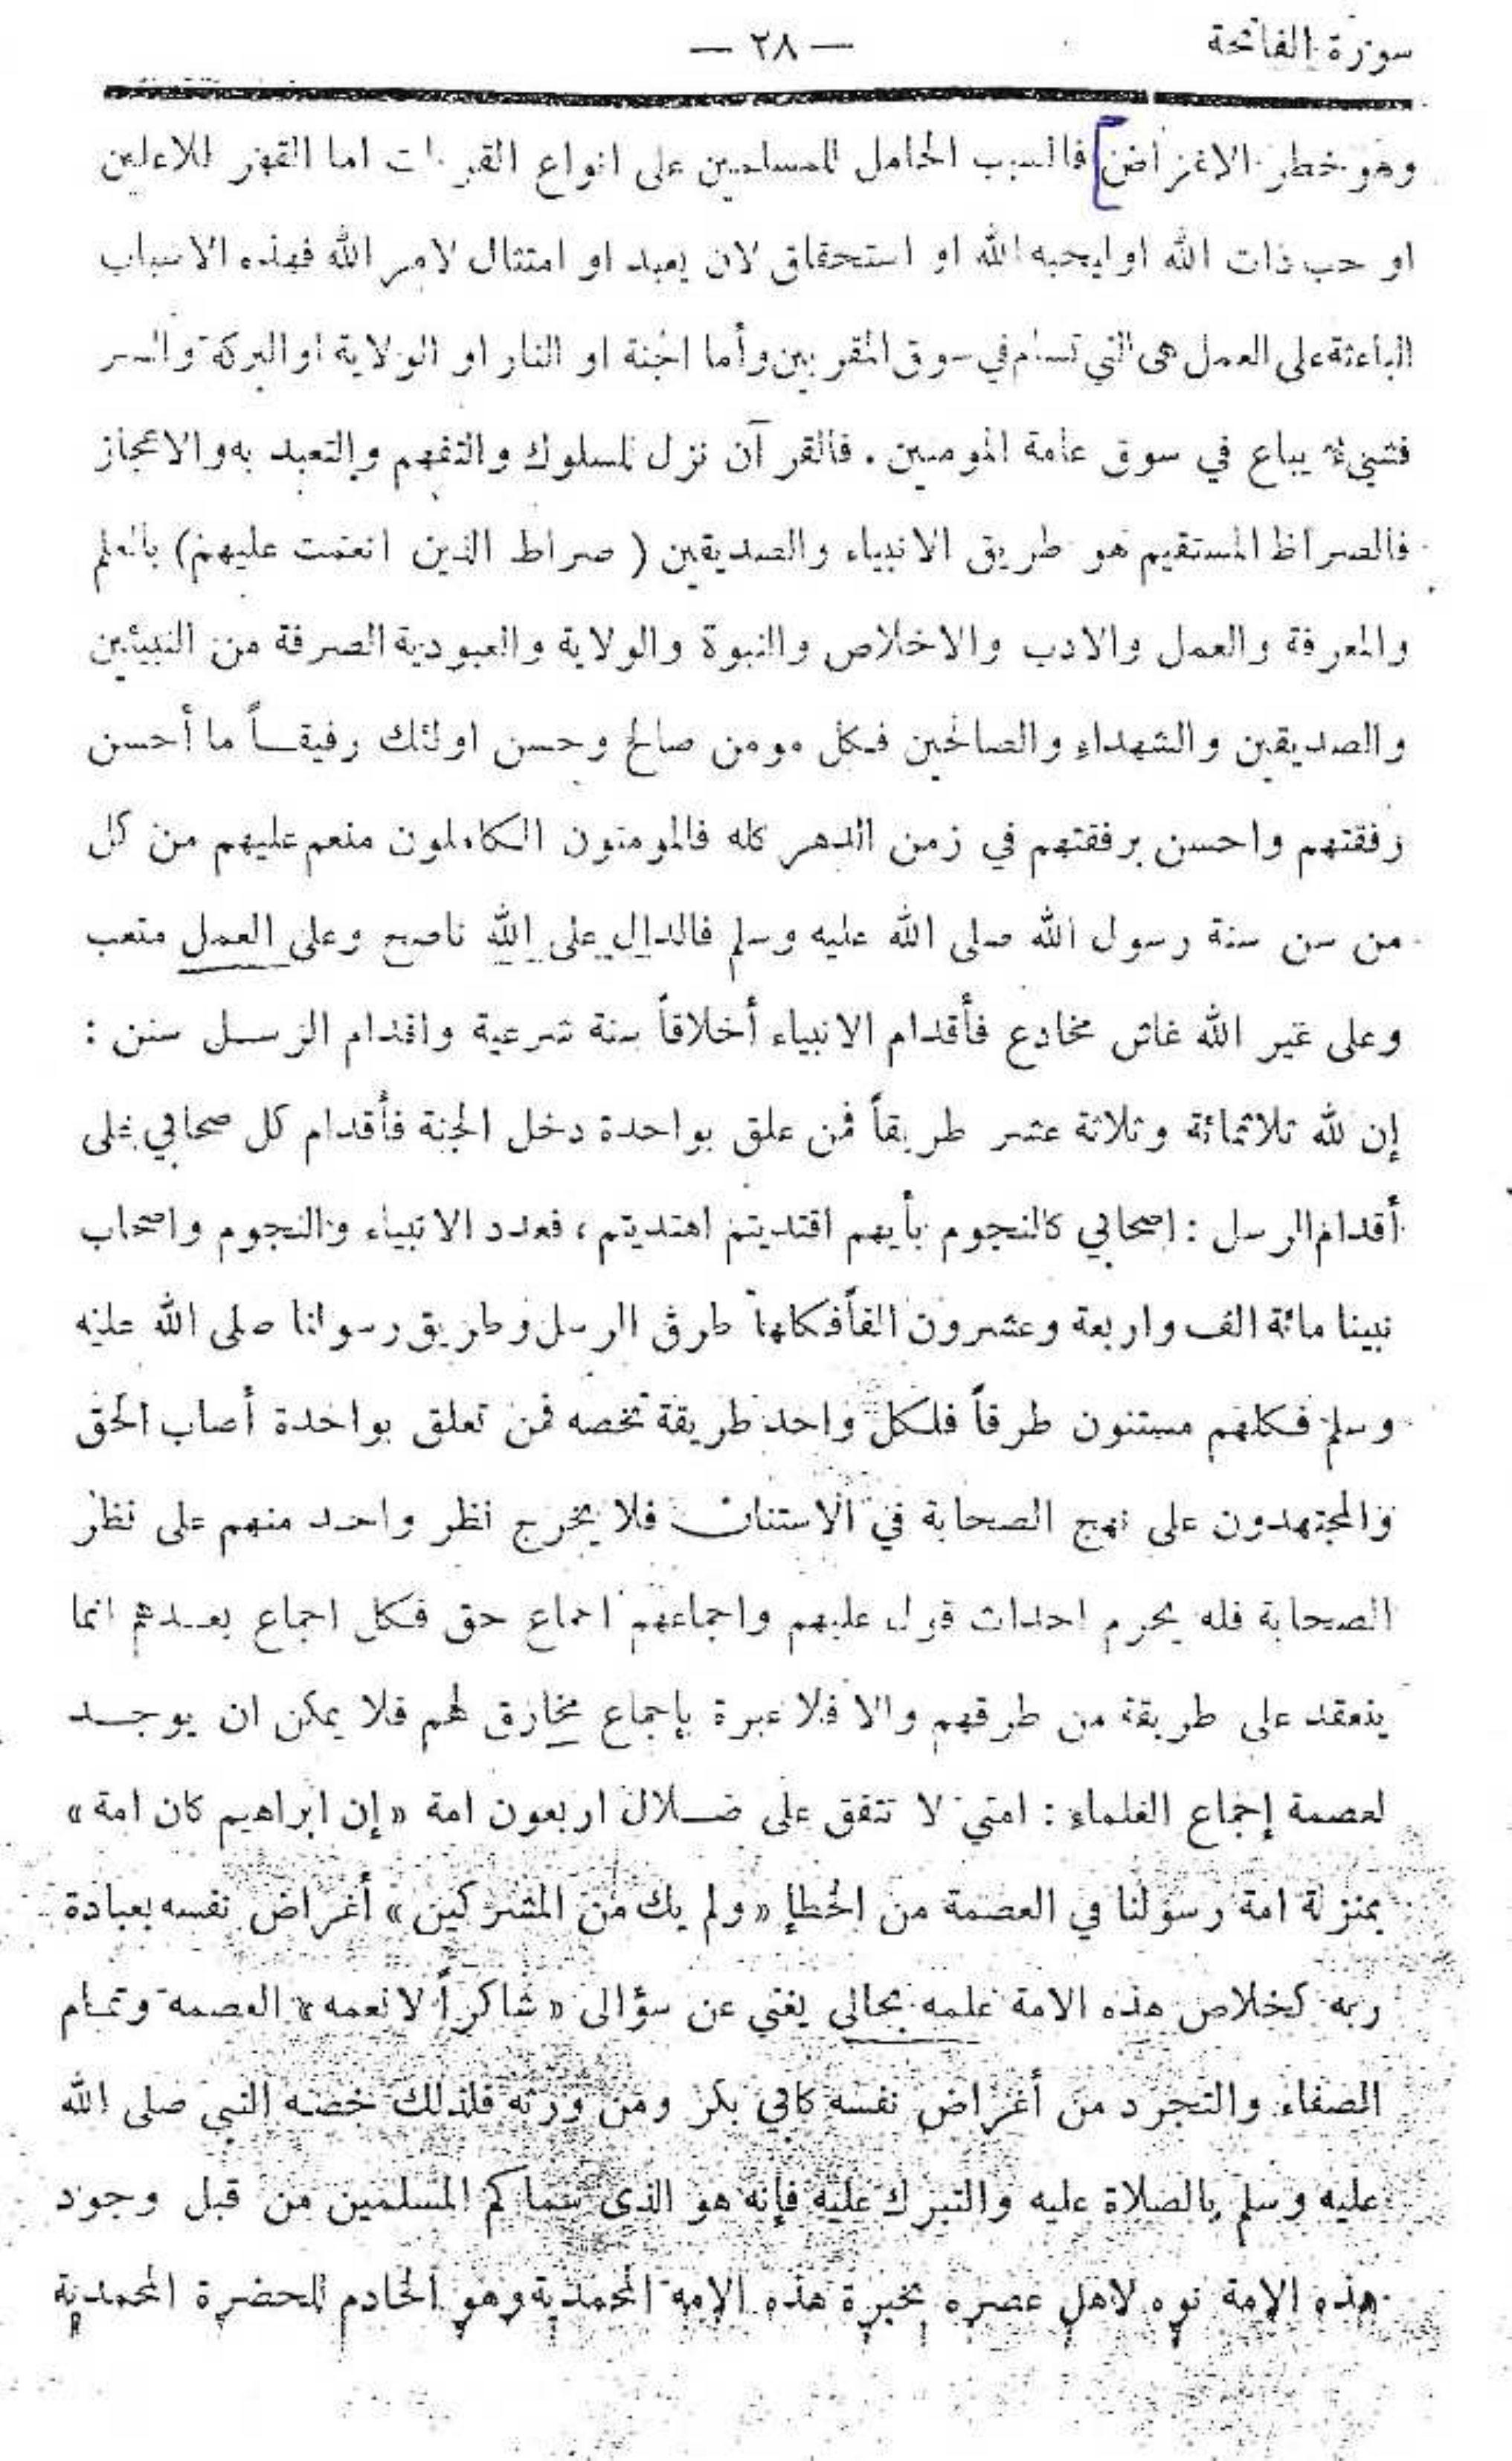 سورة الفاتحة — ٢٨ —
وهو خطر الاغراض فالسبب الحامل للمسلمين على انواع القربات اما القهر للاعلين
او حب ذات الله او ليحبه الله او استحقاق لان يعبد او امتثال لامر الله فهذه الاسباب
الباعثة على العمل هى التي تسام في سوق المقربين وأما الجنة او النار او الولاية او البركة والسر
فشيء يباع في سوق عامة المومنين . فالقرآن نزل للسلوك والتفهم والتعبد به والاعجاز
فالصراط المستقيم هو طريق الانبياء والصديقين ( صراط الذين انعمت عليهم ) بالعلم
والمعرفة والعمل والادب والاخلاص والنبوة والولاية والعبودية الصرفة من النبيئين
والصديقين والشهداء والصالحين فكل مومن صالح وحسن اولئك رفيقــاً ما أحسن
رفقتهم واحسن برفقتهم في زمن الدهر كله فالمومنون الكاملون منعم عليهم من كل
من سن سنة رسول الله صلى الله عليه وسلم فالدال على الله ناصح وعلى العمل متعب
وعلى غير الله غاش مخادع فأقدام الانبياء أخلاقاً سنة شرعية واقدام الرســل سنن :
إن لله ثلاثمائة وثلاثة عشر طريقاً فمن علق بواحدة دخل الجنة فأقدام كل صحابي على
أقدام الرسل : اصحابي كالنجوم بأيهم اقتديتم اهتديتم ، فعدد الانبياء والنجوم واصحاب
نبينا مائة الف واربعة وعشرون الفاً فكلها طرق الرسل وطريق رسولنا صلى الله عليه
وسلم فكلهم مستنون طرقاً فلكل واحد طريقة تخصه فمن تعلق بواحدة أصاب الحق
والمجتهدون على نهج الصحابة في الاستنان فلا يخرج نظر واحد منهم على نظر
الصحابة فله يحرم احداث قول عليهم واجماعهم اجماع حق فكل اجماع بعــدهم انما
ينعقد على طريقة من طرقهم والا فلا عبرة بإجماع مخارق لهم فلا يمكن ان يوجــد
لعصمة إجماع العلماء : امتي لا تتفق على ضــلال اربعون امة « إن ابراهيم كان امة »
بمنزلة امة رسولنا في العصمة من الخطإ « ولم يك من المشركين » أغراض نفسه بعبادة
ربه كخلاص هذه الامة علمه بحالى يغني عن سؤالى « شاكراً لانعمه » العصمه وتمــام
الصفاء والتجرد من أغراض نفسه كابي بكر ومن ورثه فلذلك خصه النبي صلى الله
عليه وسلم بالصلاة عليه والتبرك عليه فإنه هو الذى سماكم المسلمين من قبل وجود
هذه الامة نوه لاهل عصره بخبرة هذه الامه المحمدية وهو الخادم للحضرة المحمدية